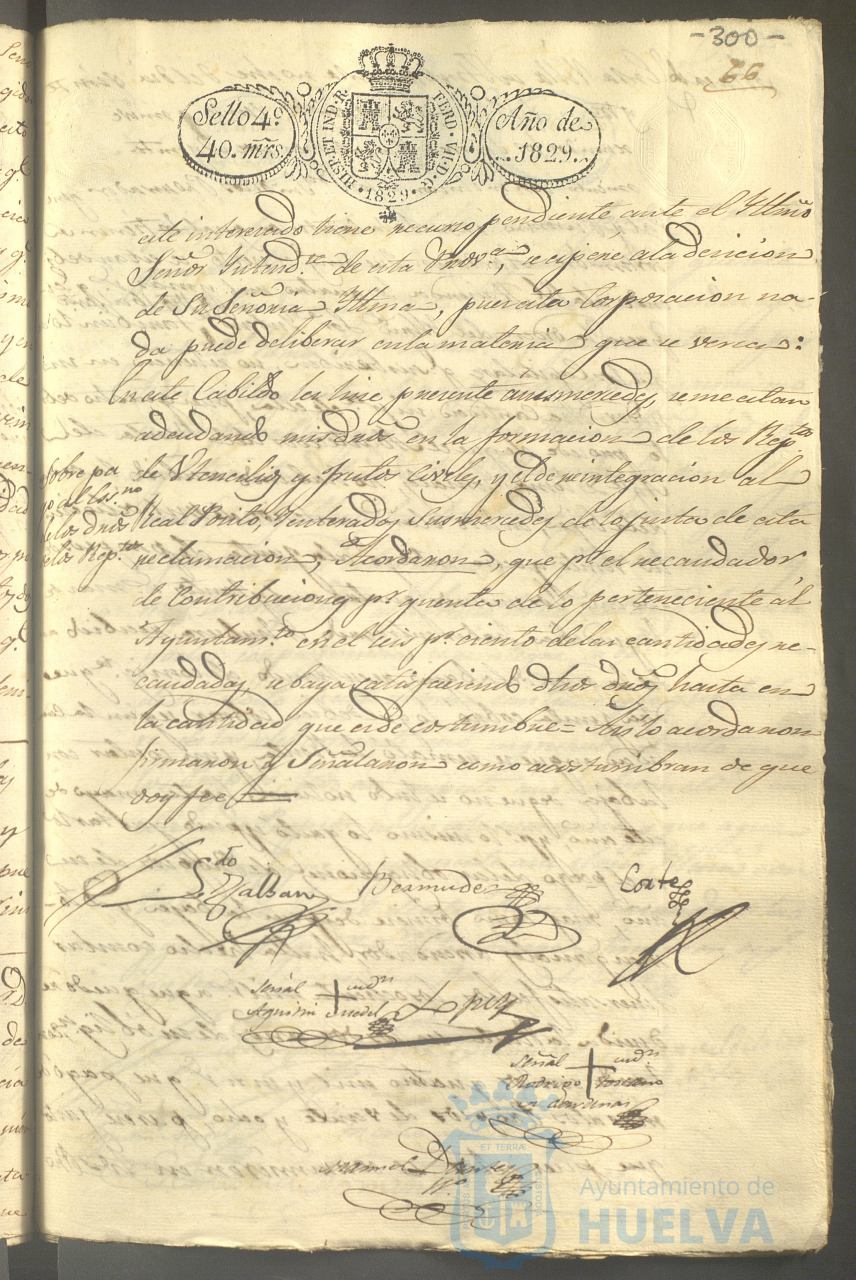 -300-
66
Sello 4.º
40. mrs.
HISP. ET IND. R.
FERD. VII. D. G.
1829
Año de
1829.
este interesado tiene recurso pendiente ante el Yltmo
Señor Yntend.te de esta Prov.a, se espere a la decision
de Su Señoria Yltma, pues esta Corporacion na-
da puede deliberar en la materia que se versa:
En este Cabildo les hice presente á sus mercedes, se me estan
adeudando mis dros en la formacion de los Rep.tos
de Utencilios y frutos Civiles, y el de reintegracion al
Real Posito, Y enterados Sus mercedes de lo justa de esta
reclamacion, Acordaron, que p.r el recaudador
de Contribuciones p.r quenta de lo perteneciente ál
Ayuntam.to en el seis p.r ciento de las cantidades re-
caudadas, se baya satisfaciendo dhos dros hasta en
la cantidad que es de costumbre= Asi lo acordaron
firmaron y Señalaron como acostumbran de que
doy fee
Sobre pa
go al Ess.no
de los dros
de los Rep.tos
Galban
Bermudez
Corte
Señal
Agustin
Lopez
Señal
Rodrigo
Manuel
ET TERRÆ
Ayuntamiento de
HUELVA